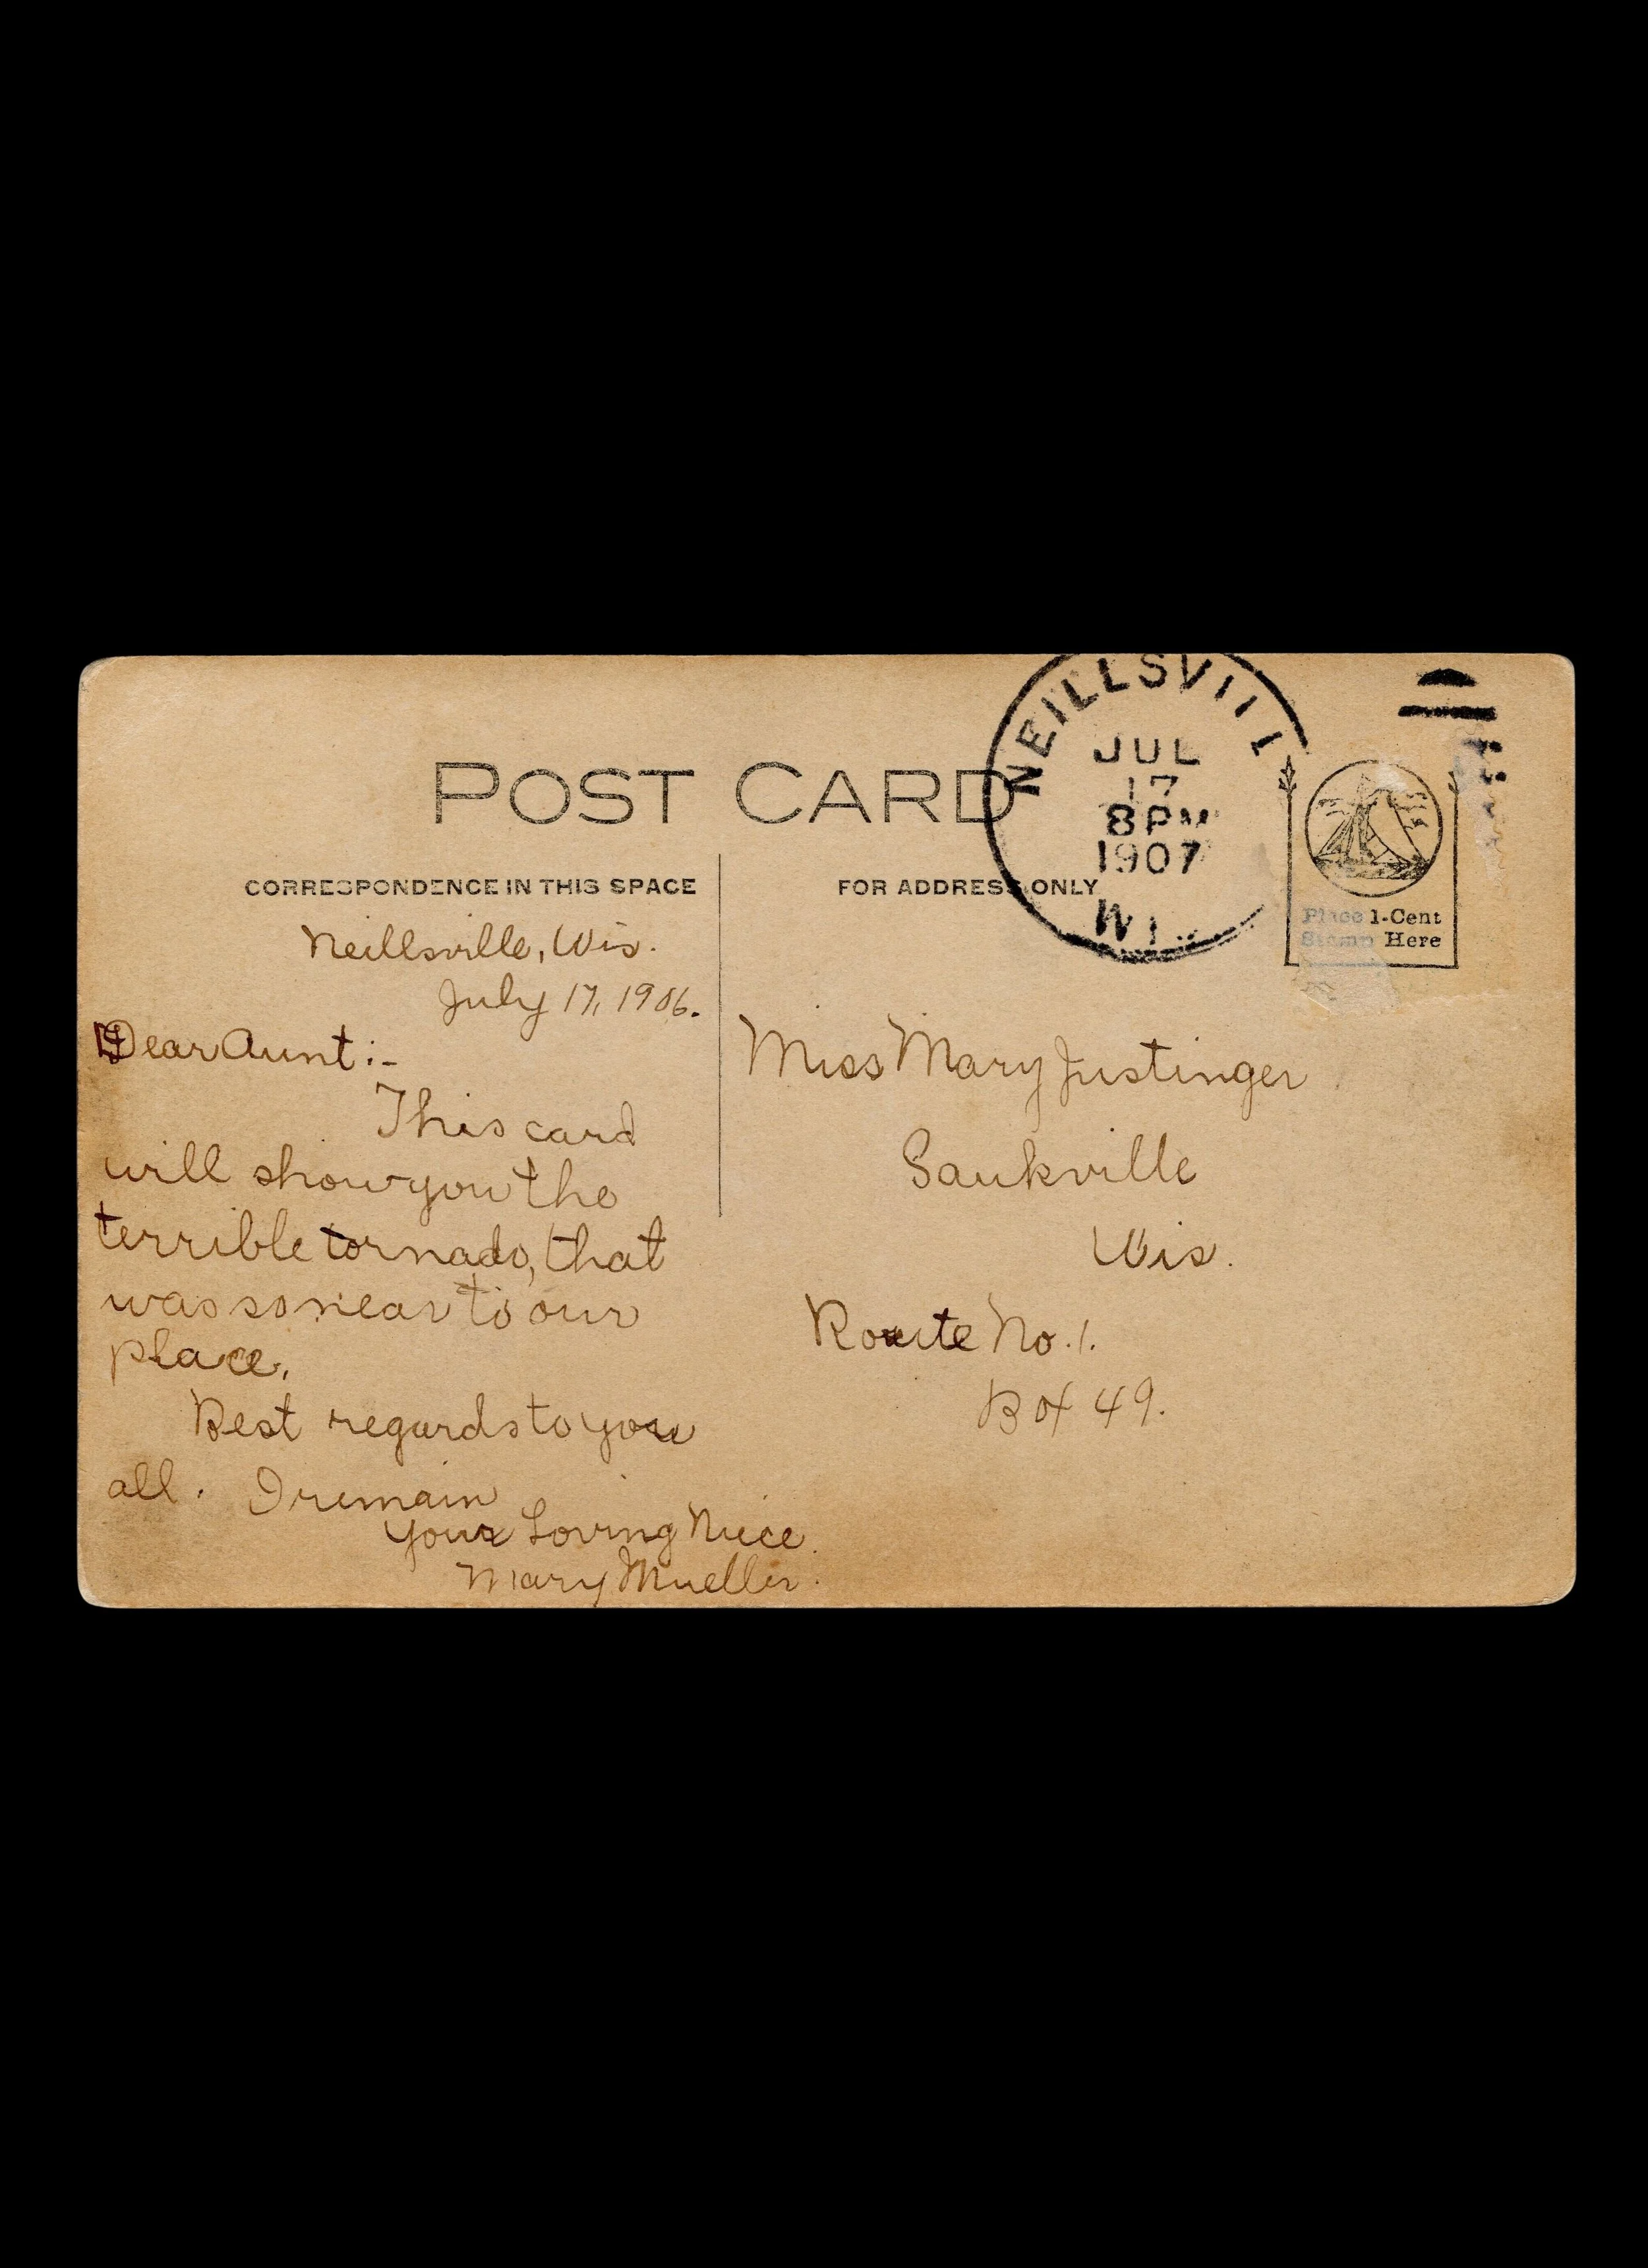 POST CARD
NEILLSVILL
JUL
17
8 PM
1907
WI
CORRESPONDENCE IN THIS SPACE
FOR ADDRESS ONLY
Place 1-Cent
Stamp Here
Neillsville, Wis.
July 17, 1906.
Dear Aunt:-
This card
will show you the
terrible tornado, that
was so near to our
place.
Best regards to you
all. I remain
Your Loving Niece.
Mary Mueller.
Miss Mary Justinger
Saukville
Wis.
Route No. 1.
Box 49.